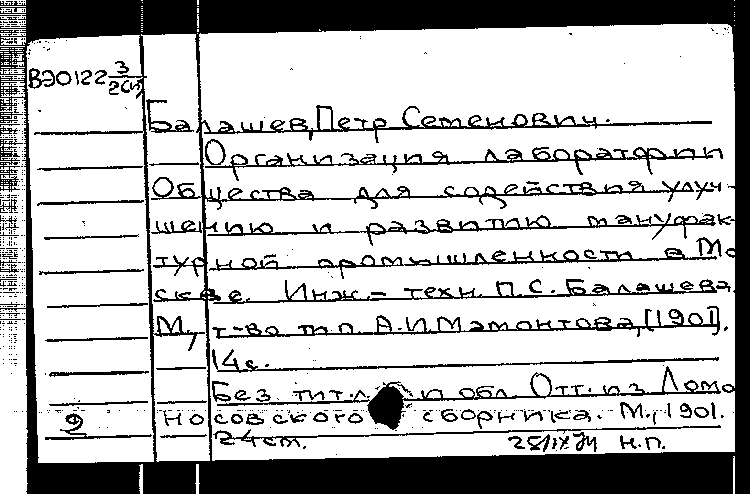 ВЭ0122 3/2(И)
Балашев, Петр Семенович.
Организация лаборатории
Общества для содействия улуч-
шению и развитию мануфак-
турной промышленности в Мо
скве. Инж.- техн. П.С. Балашева.
М., т-во тип. А.И. Мамонтова, [1901].
14с.
Без тит.л. и обл. Отт. из Ломо
9 носовского сборника. М., 1901.
24см. Н.П.